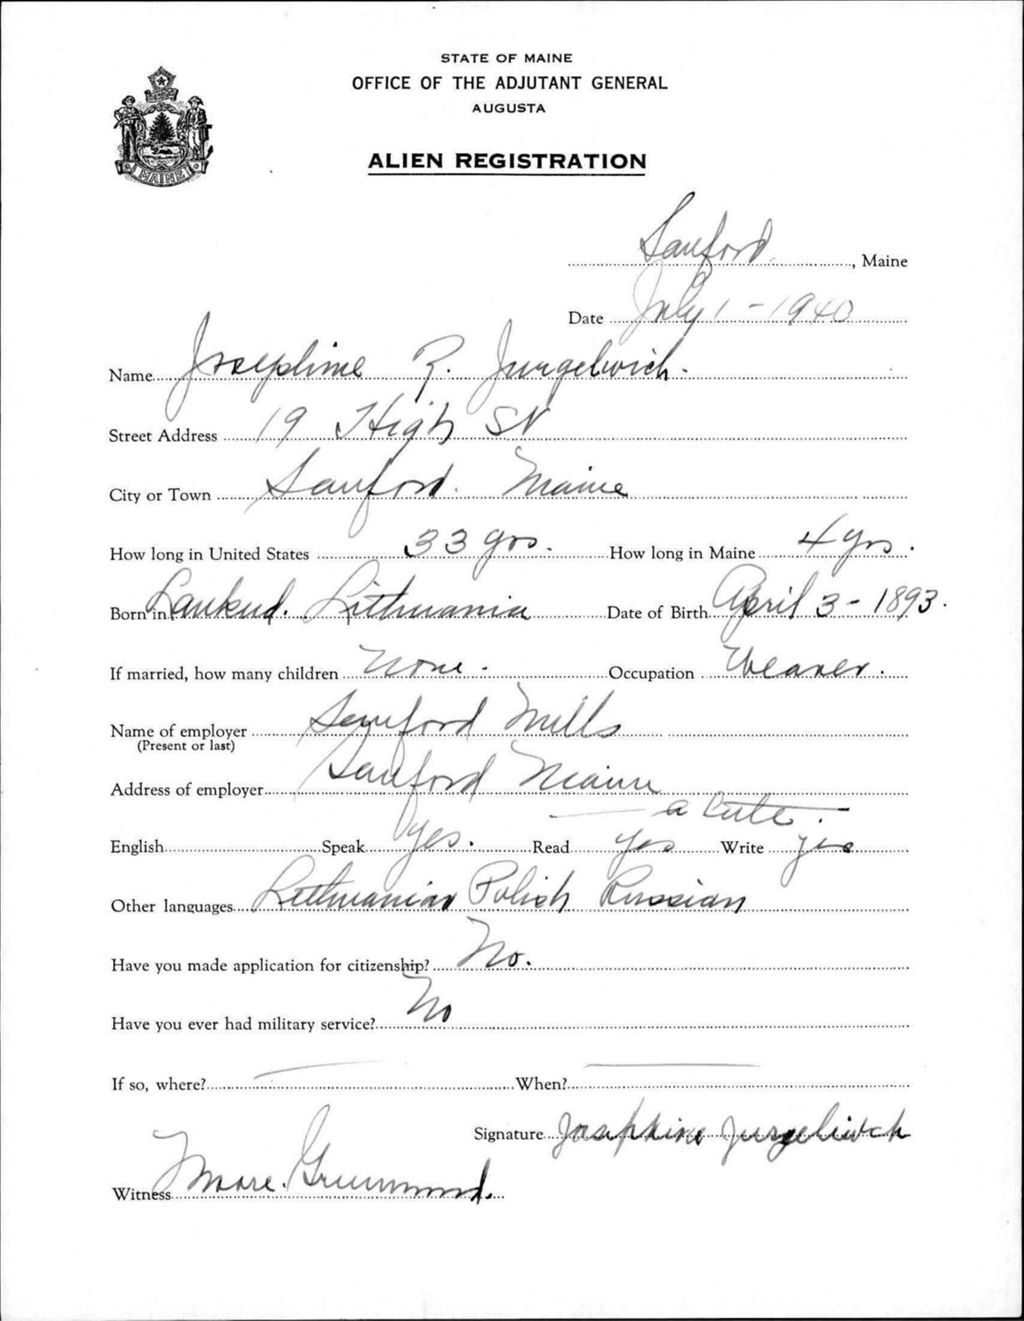 STATE OF MAINE
OFFICE OF THE ADJUTANT GENERAL
AUGUSTA
MAINE
ALIEN REGISTRATION
Sanford, Maine
Date July 1 - 1940
Name Josephine R. Jurgelwich.
Street Address 19 High St
City or Town Sanford. Maine
How long in United States 33 yrs. How long in Maine 4 yrs.
Born in Laukud. Lithuania Date of Birth April 3 - 1893.
If married, how many children None. Occupation Weaver.
Name of employer Sanford Mills
(Present or last)
Address of employer Sanford Maine
a little.
English Speak yes. Read yes Write yes
Other languages Lithuanian Polish Russian
Have you made application for citizenship? No.
Have you ever had military service? No
If so, where? When?
Signature Josephine Jurgeliwich
Witness